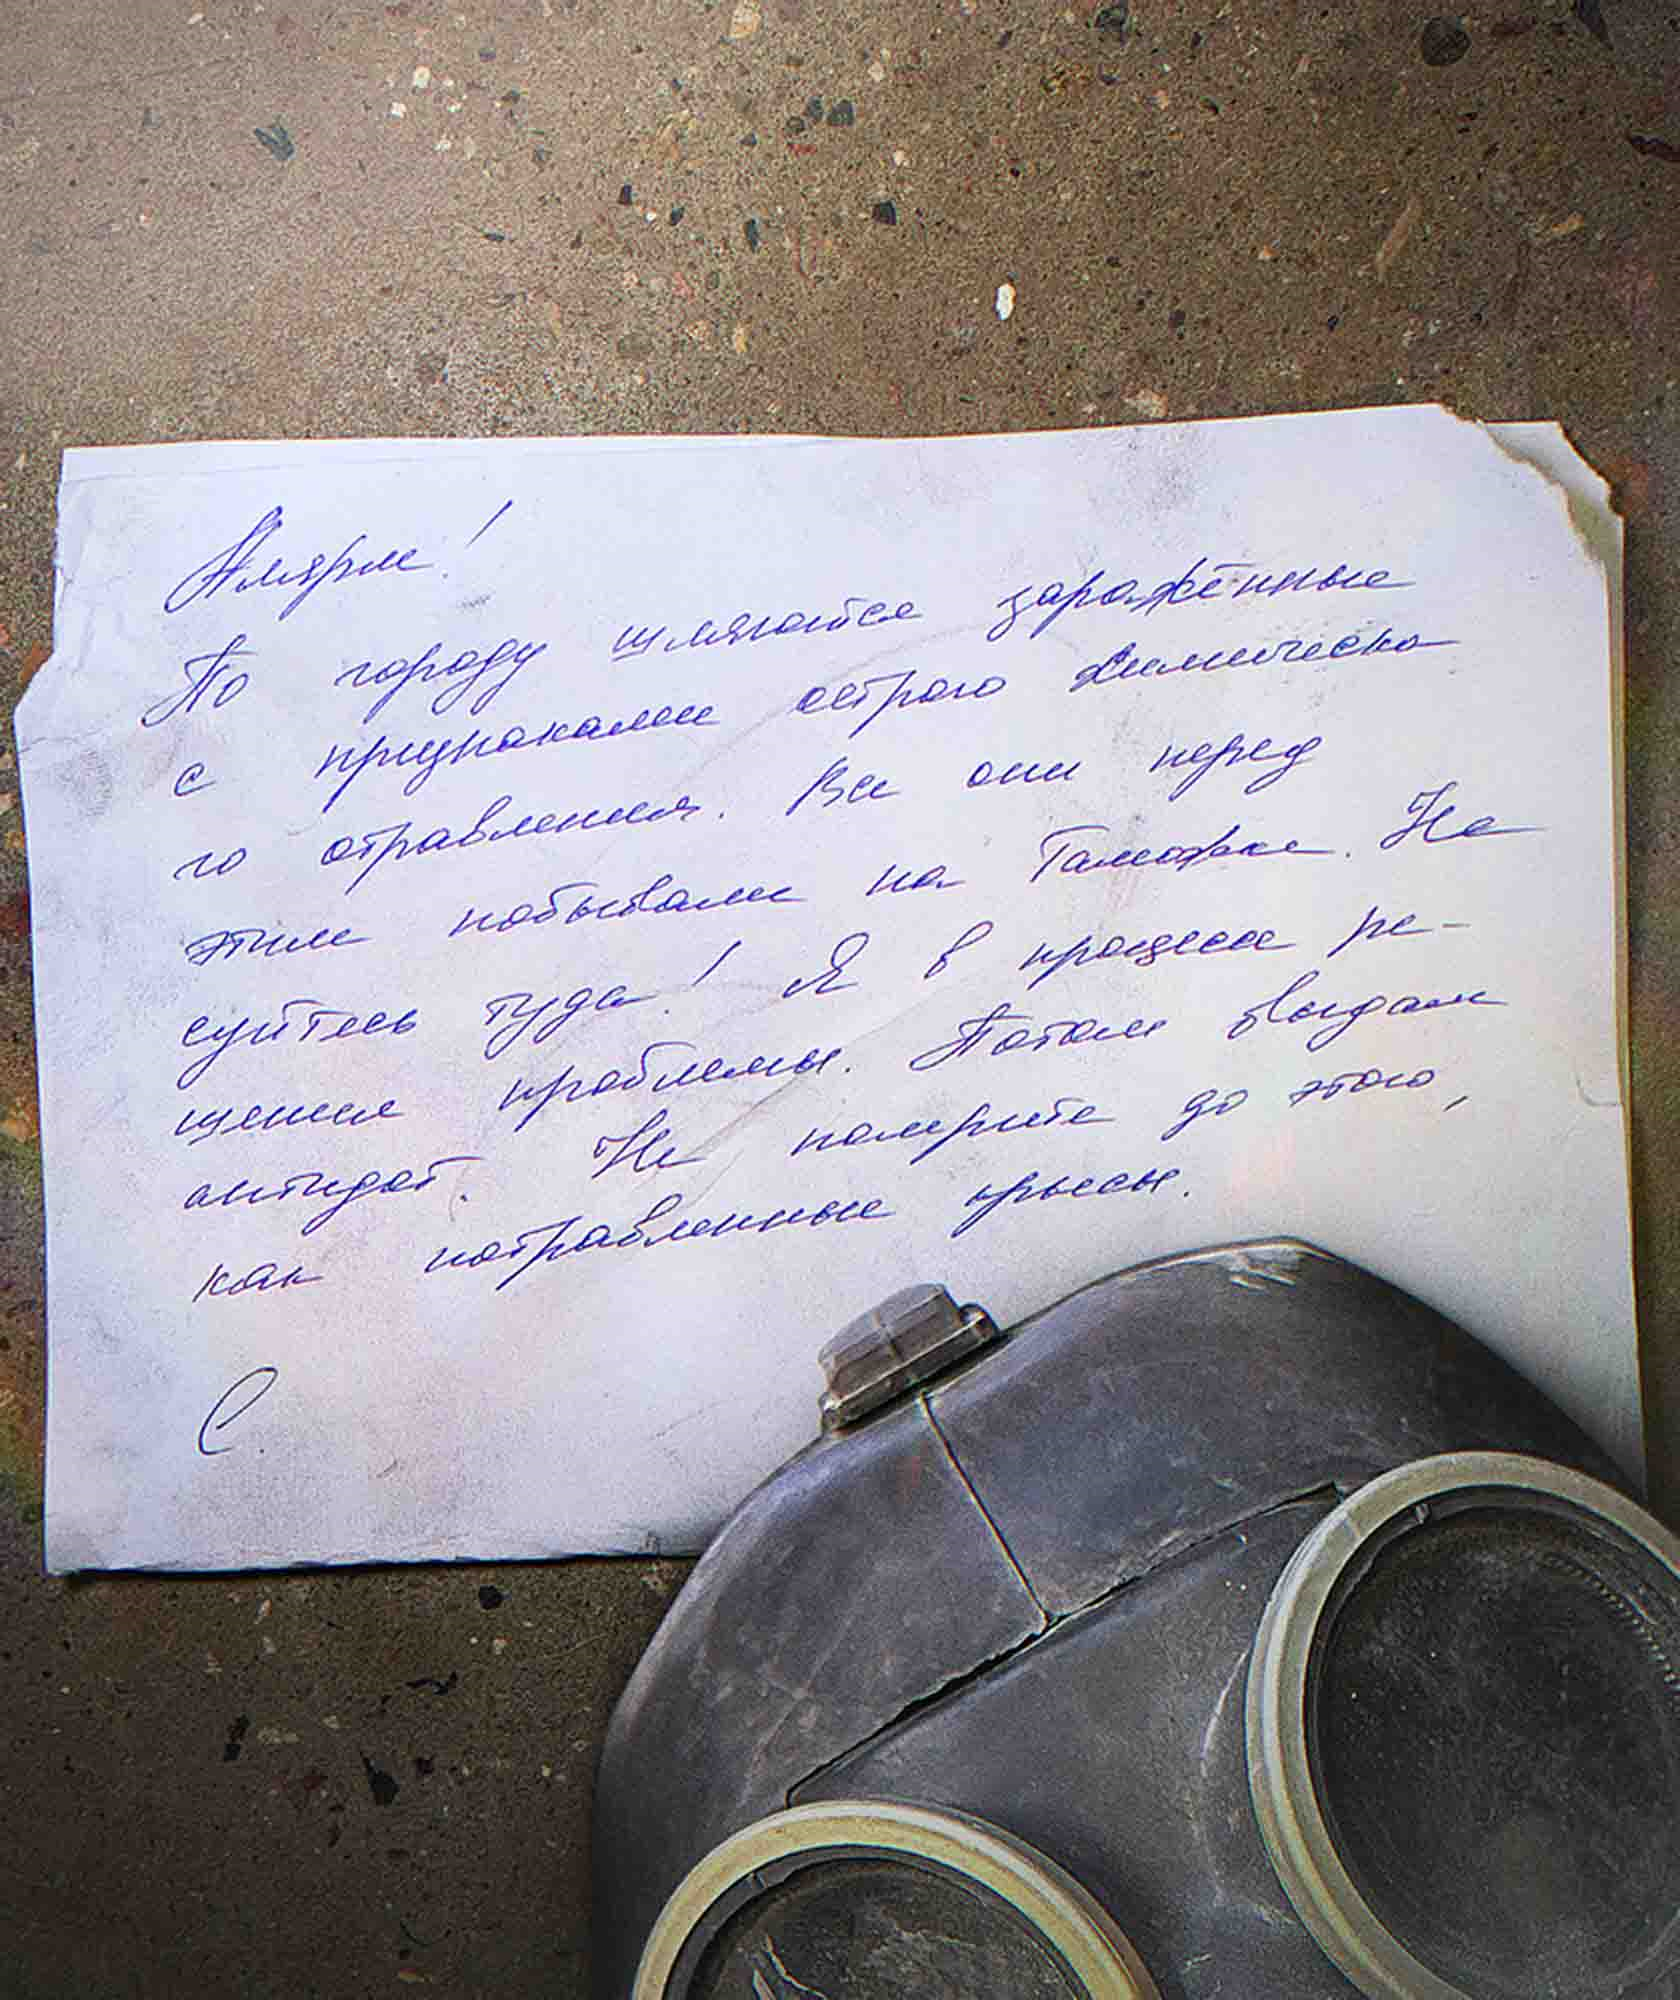 Алярм!
По городу шляются заражённые
с признаками острого химическо
го отравления. Все они перед
этим побывали на Таможке. Не
суйтесь туда! Я в процессе ре-
щения проблемы. Потом выдам
антидот. Не помрите до этого,
как потравленные крысы.
С.